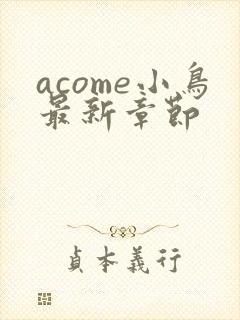 acome小鳥
最新章節
貞本義行